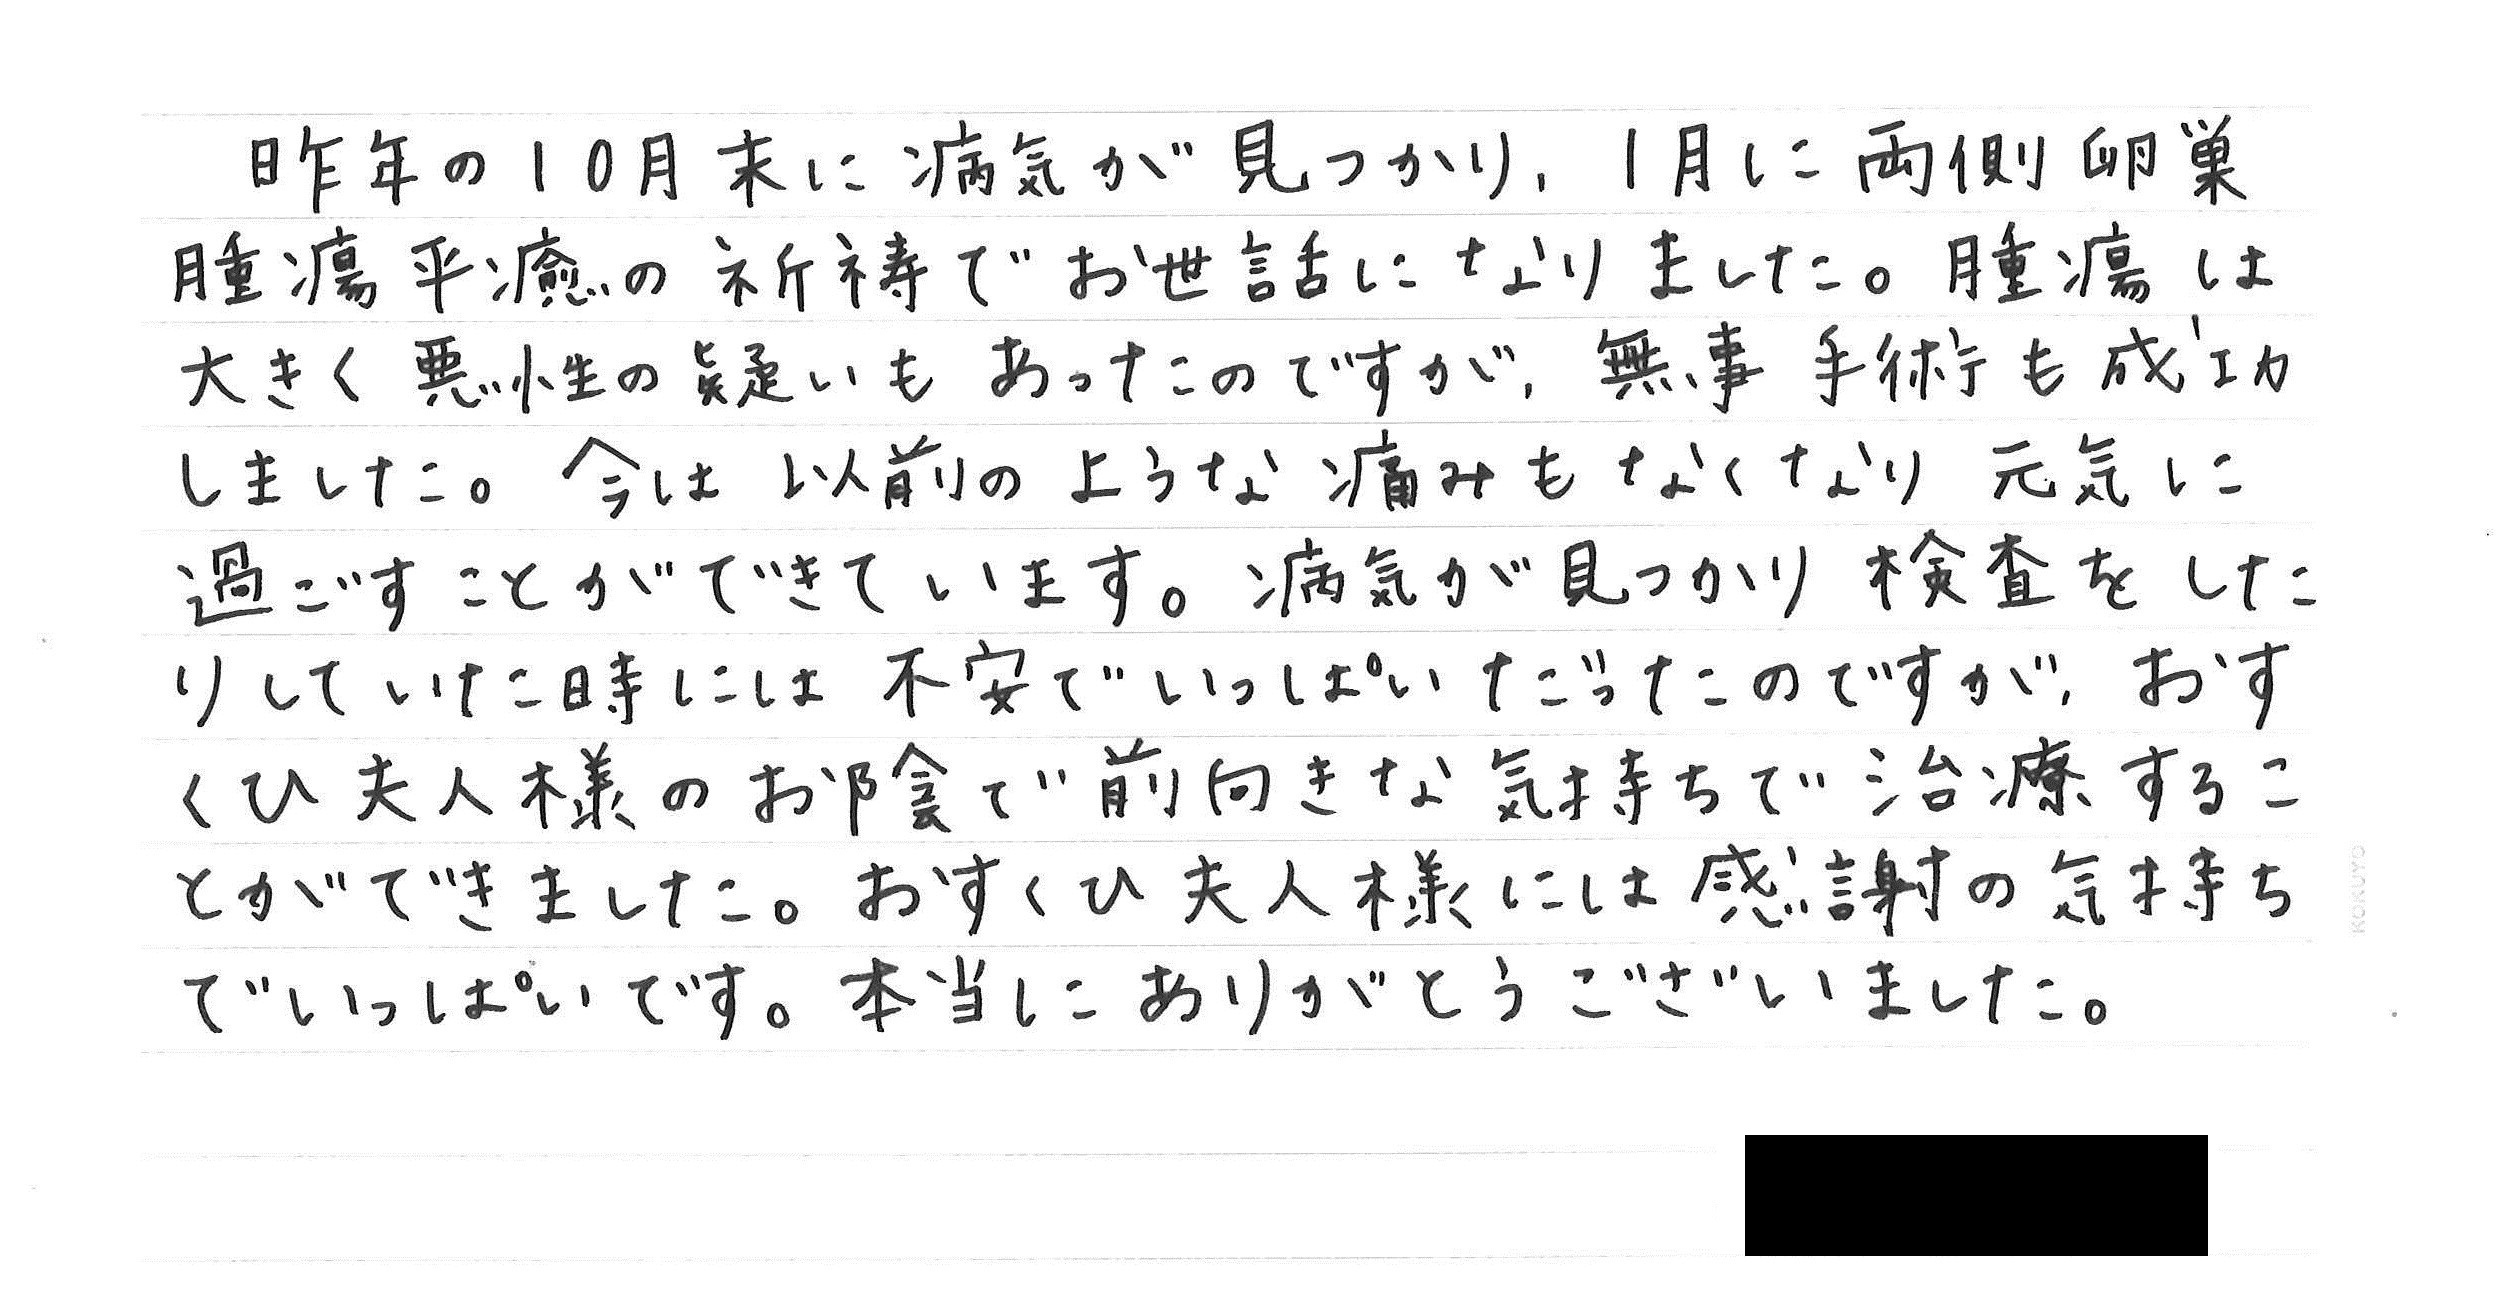 昨年の10月末に病気が見つかり、1月に両側卵巣
腫瘍平癒の祈祷でお世話になりました。腫瘍は
大きく悪性の疑いもあったのですが、無事手術も成功
しました。今は以前のような痛みもなくなり元気に
過ごすことができています。病気が見つかり検査をした
りしていた時には不安でいっぱいだったのですが、おす
くひ夫人様のお陰で前向きな気持ちで治療するこ
とができました。おすくひ夫人様には感謝の気持ち
でいっぱいです。本当にありがとうございました。
KOKUYO